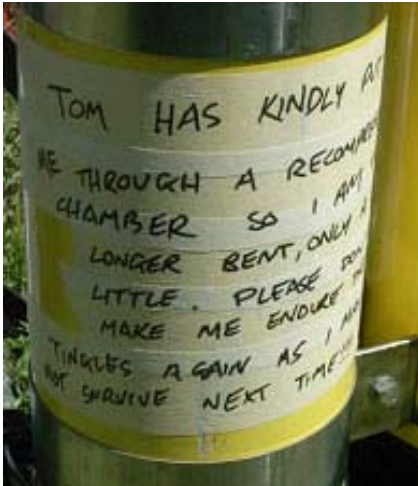 TOM HAS KINDLY
ME THROUGH A
CHAMBER SO I AM
LONGER BENT, ONLY A
LITTLE. PLEASE
MAKE ME ENDURE
TINGLES AGAIN AS I
NOT SURVIVE NEXT TIME!!!